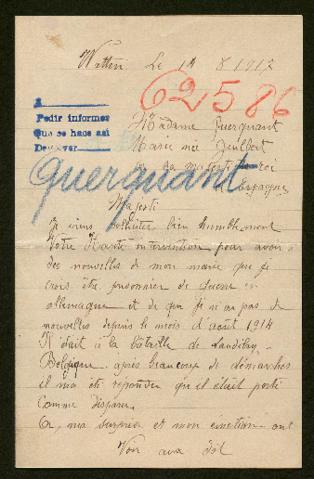 Watten Le 14 8 1917
62586
A
Pedir informes
Que se hace asi
Devolver
Madame Querquant
Marie née
sa majesté roi
Espagne
Querquant
Majesté
Je viens solliciter bien humblement
Votre Majesté intervention pour avoir
des nouvelles de mon marie que je
crois être prisonnier de guerre en
allemagne et de que je n'ai pas de
nouvelles depuis le mois d'août 1914
Il était à la bataille de
Belgique après beaucoup de démarches
il ma été repondu qu'il était porté
comme disparu.
Or, ma surprise et mon émotion ont
Voir aux dôt